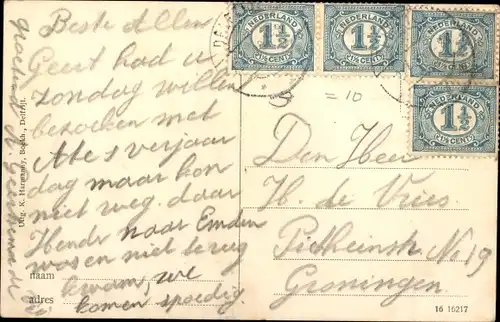 Beste Allen
Geert had u
zondag willen
bezoeken met
Ate's verjaar
dag maar kon
niet weg. daar
Hendr naar Emden
was en niet terug
kwam, we
komen spoedig.
naam
adres
Groetend
Uitg. K. Harmanny, Boekh., Delfzijl.
NEDERLAND
1½
CENT
NEDERLAND
1½
CENT
NEDERLAND
1½
CENT
NEDERLAND
1½
CENT
= 10
Den Heer
H. de Vries.
Piet Heinstr. No 19
Groningen.
16 16217